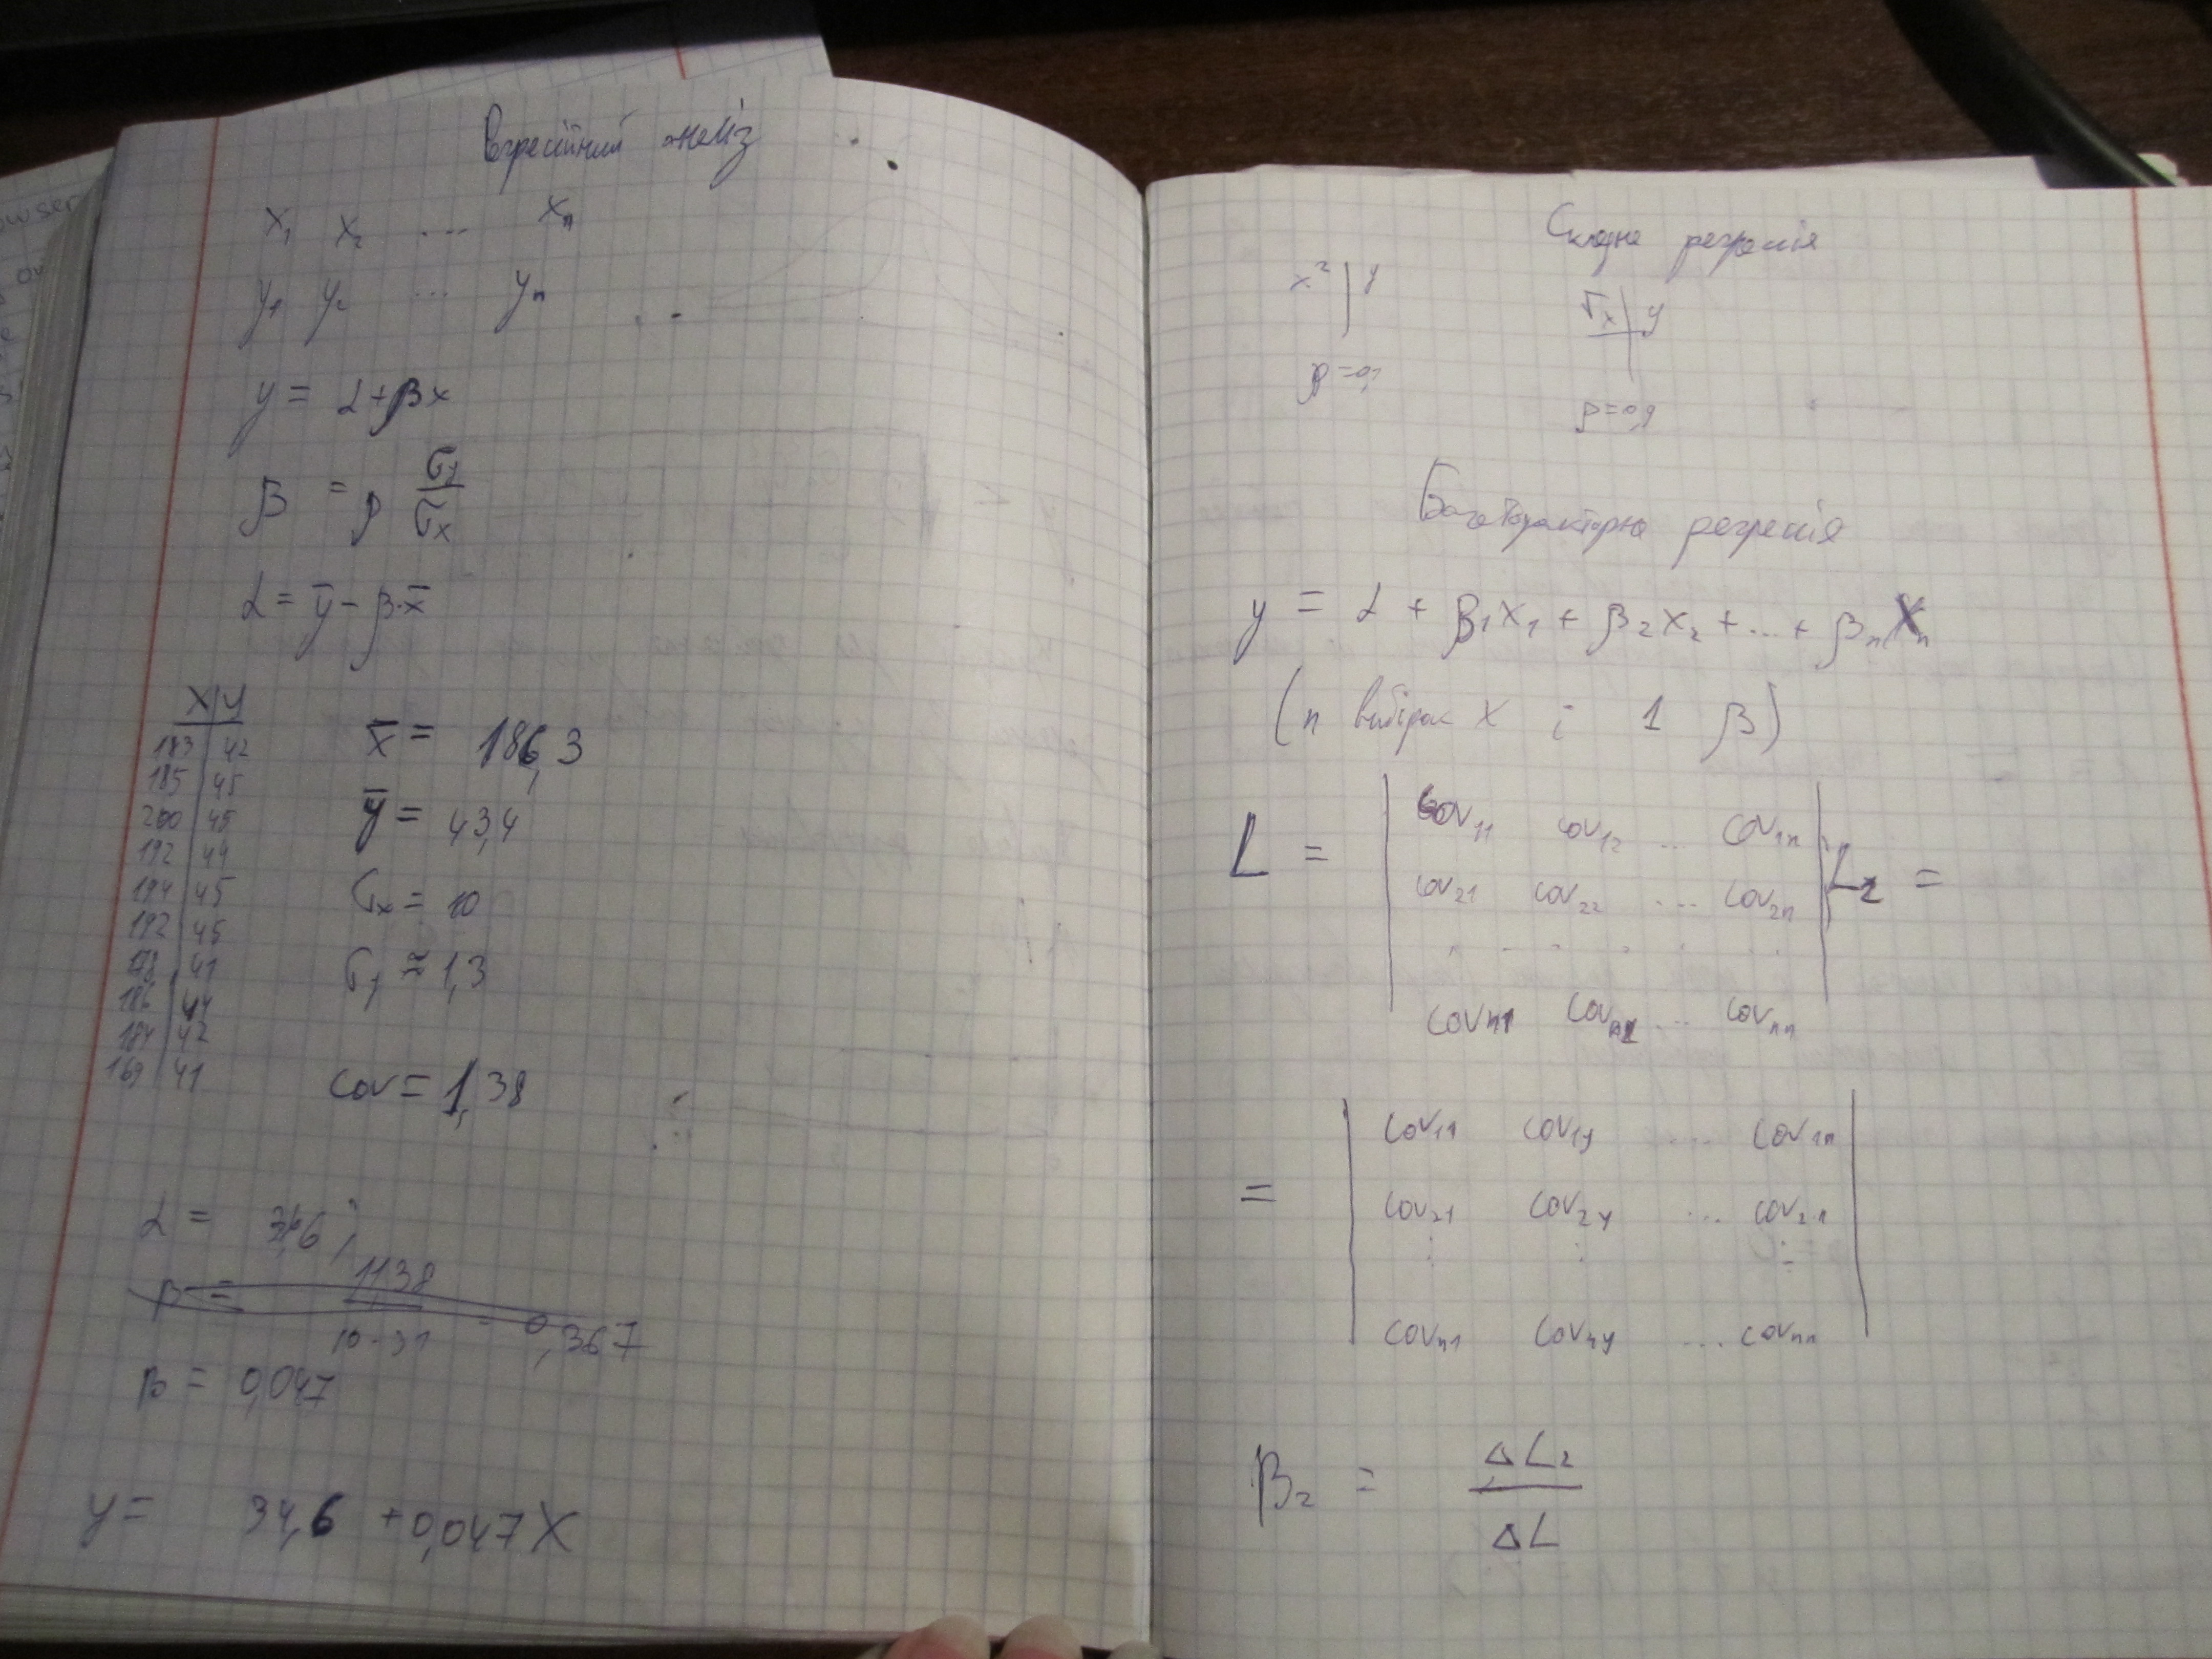 аналіз
x₁ x₂ ... xₙ
y₁ y₂ ... yₙ
y = α + βx
β = ρ σy/σx
α = ȳ - β·x̄
x | y
183 | 42
185 | 45
200 | 45
192 | 44
194 | 45
192 | 45
41
186 | 44
184 | 42
169 | 41
x̄ = 186,3
ȳ = 43,4
σx = 10
σy ≈ 1,3
cov = 1,38
α = 
β = 0,047
y = 34,6 + 0,047X
Складна регресія
x² | y
√x | y
ρ = 0,9
Багатофакторна регресія
y = α + β₁x₁ + β₂x₂ + ... + βₙXₙ
(n вибірок X і 1 β)
L = | cov₁₁ cov₁₂ ... cov₁ₙ | L₂ =
cov₂₁ cov₂₂ ... cov₂ₙ
covₙ₁ covₙ₂ ... covₙₙ
= | cov₁₁ cov₁y ... cov₁ₙ |
cov₂₁ cov₂y ... cov₂ₙ
covₙ₁ covₙy ... covₙₙ
β₂ = ΔL₂/ΔL